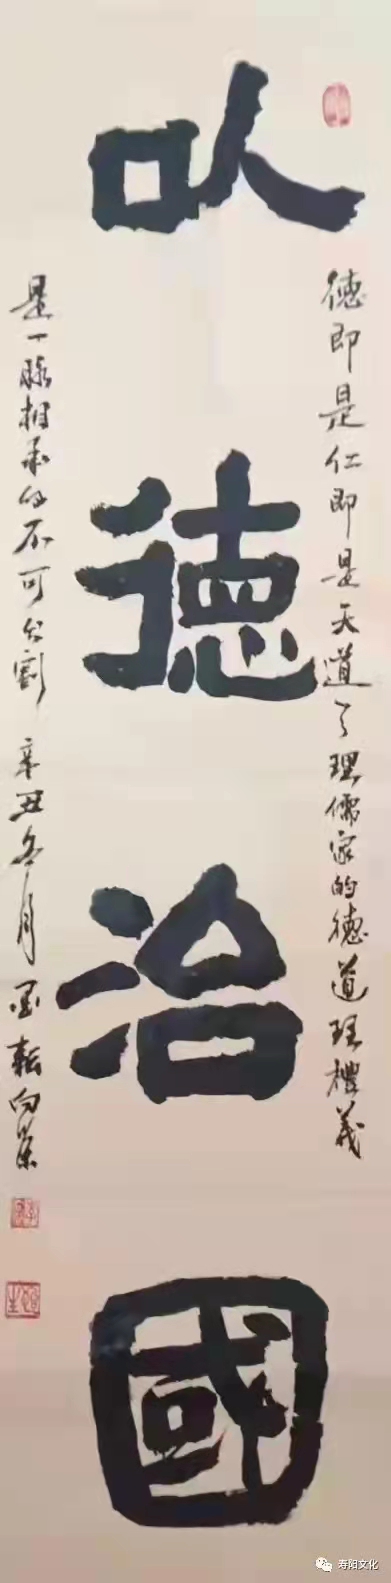 以德治國
德即是仁即是天道之理儒家的德道理禮義
是一脉相承的不可分割 辛丑冬月
寿阳文化